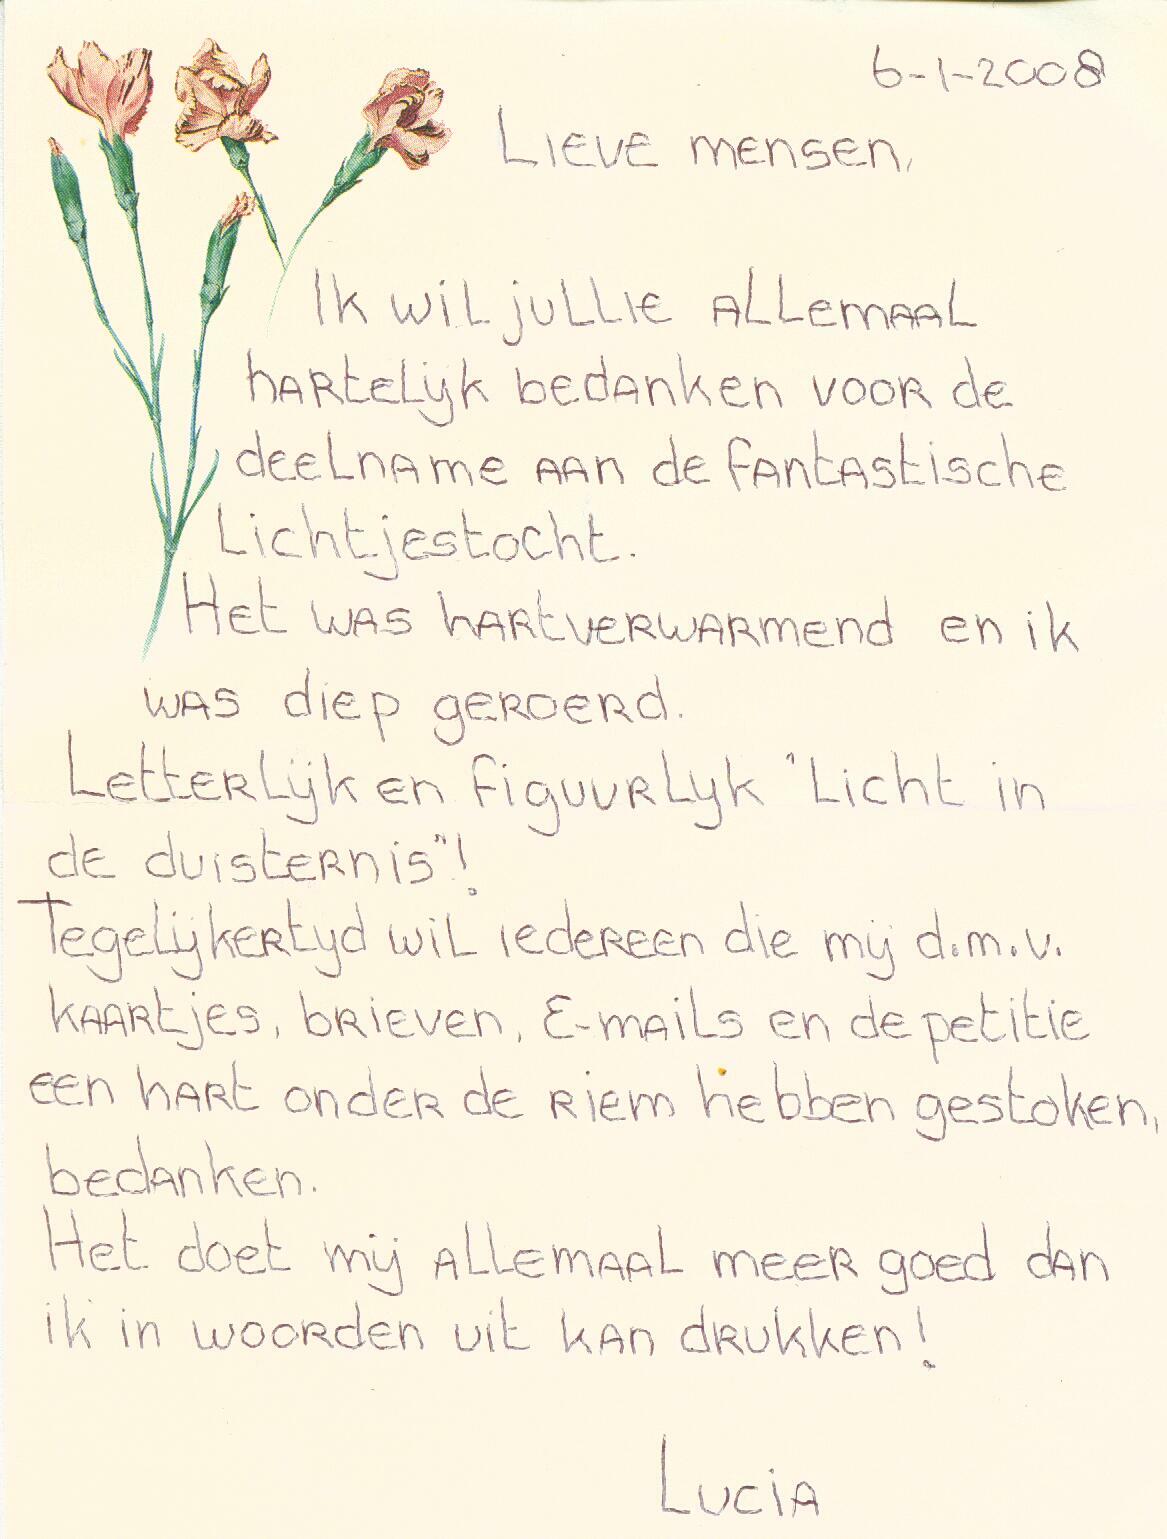 6-1-2008
Lieve mensen,
Ik wil jullie allemaal
hartelijk bedanken voor de
deelname aan de fantastische
Lichtjestocht.
Het was hartverwarmend en ik
was diep geroerd.
Letterlijk en figuurlyk "Licht in
de duisternis"!
Tegelijkertyd wil iedereen die mij d.m.v.
kaartjes, brieven, E-mails en de petitie
een hart onder de riem hebben gestoken,
bedanken.
Het doet mij allemaal meer goed dan
ik in woorden uit kan drukken!
Lucia